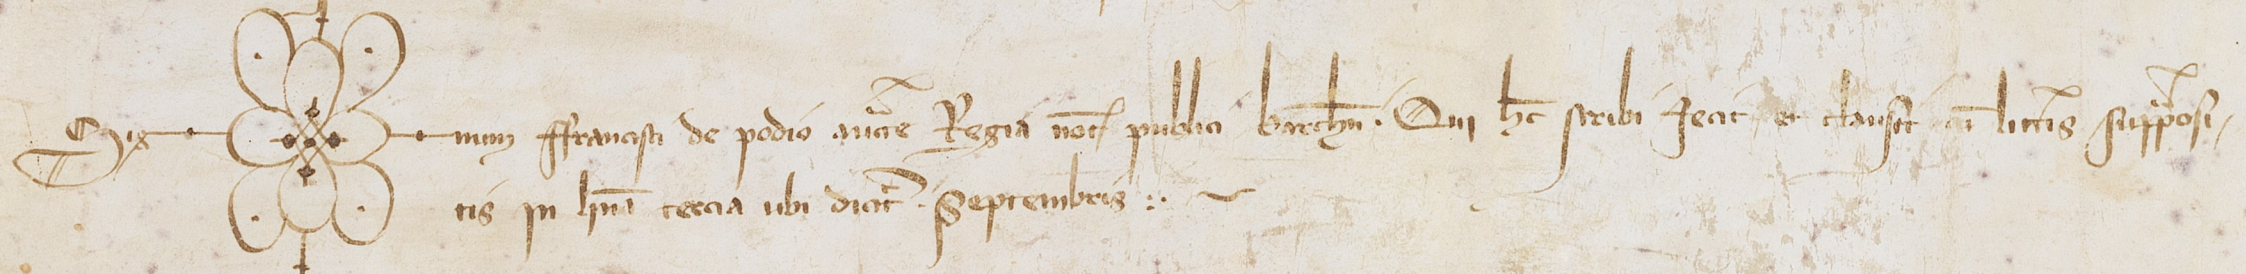 Sig num ffrancisci de podio auct̃e Regia not̃ publici barchñ. Qui h̃c scribi fecit et clausit cũ litt̃is supp̃osi-
tis in linẽa tercia ubi dicit̃. Septembris :~